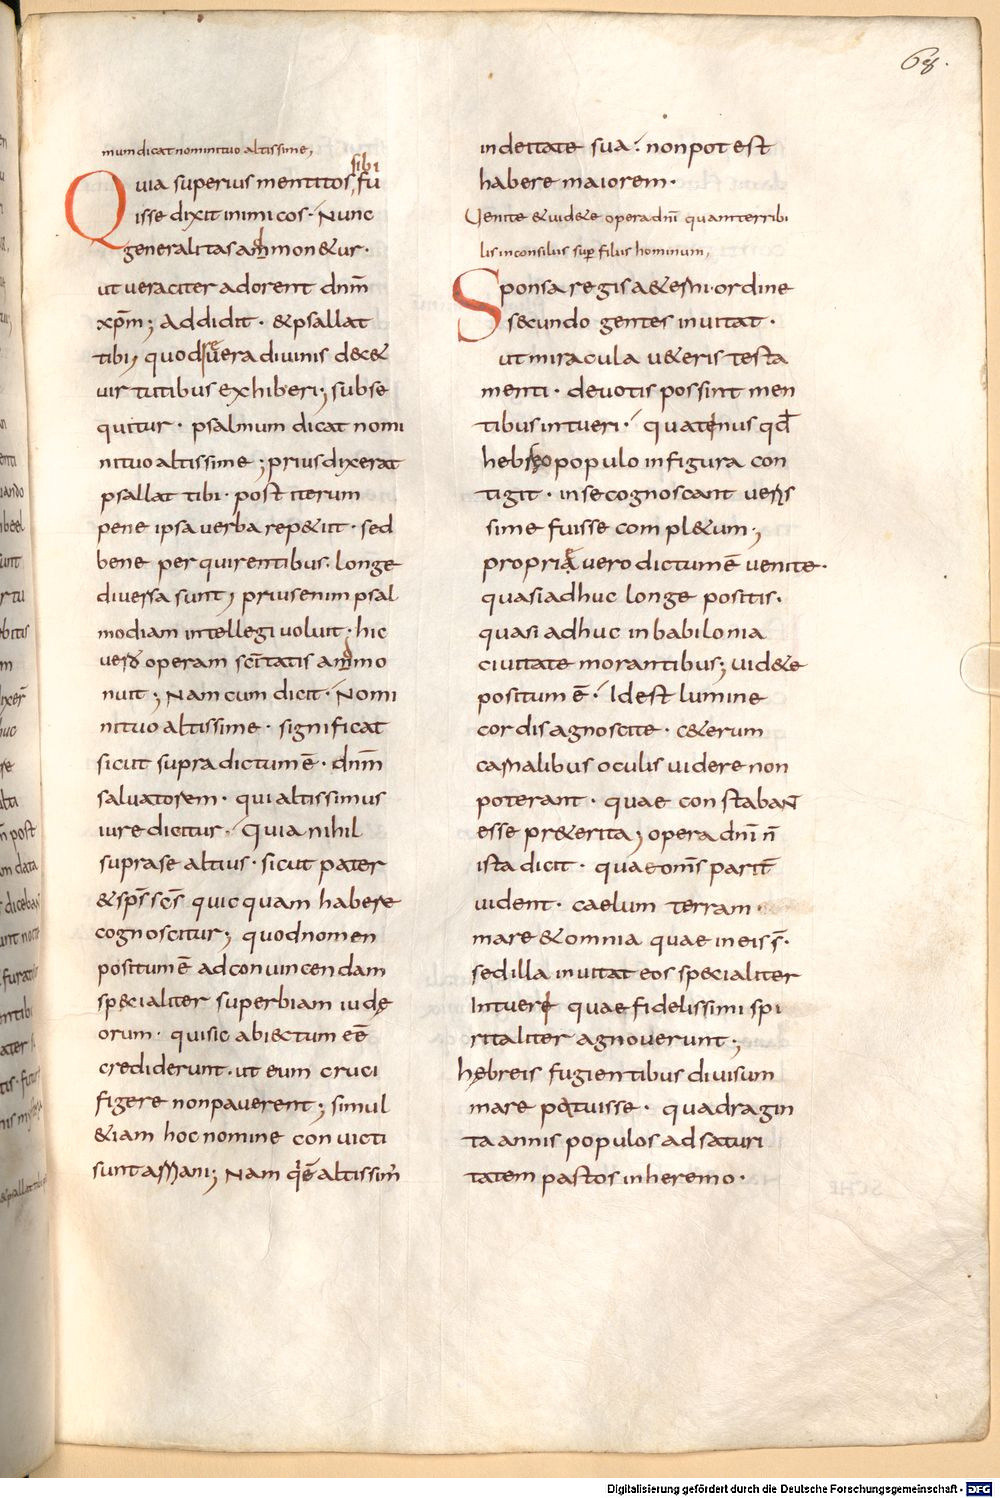 68.
mum dicat nomini tuo altissime,
sibi
Quia superius mentitos, fu
isse dixit inimicos· Nunc
generalitas ammon&ur·
ut veraciter adorent dnm̄
xp̄m; addidit· &psallat
tibi, quod severa divinis dec&
virtutibus exhiberi; subse
quitur· psalmum dicat nomi
ni tuo altissime; prius dixerat
psallat tibi· post iterum
pene ipsa verba rep&iit· sed
bene perquirentibus· longe
diversa sunt; prius enim psal
modiam intellegi voluit· hic
vero operam sc̄itatis ammo
nuit; Nam cum dicit· Nomi
ni tuo altissime· significat
sicut supra dictum ē· dnm̄
salvatorem· qui altissimus
iure dicitur· quia nihil
supra se altius· sicut pater
&sp̄s sc̄s quicquam habere
cognoscitur; quod nomen
positum ē ad convincendam
specialiter superbiam iudę
orum· qui sic abiectum eē
crediderunt· ut eum cruci
figere non paverent; simul
&iam hoc nomine convicti
sunt arriani; Nam q̄ ē altissim̄
in deitate sua· non potest
habere maiorem·
Venite &vid&e opera dnī quam terribi
lis in consiliis sup filius hominum,
Sponsa regis a&erni· ordine
secundo gentes invitat·
ut miracula v&eris testa
menti· devotis possint men
tibus intueri· quatenus qd̄
hebreo populo in figura con
tigit· in se cognoscant veris
sime fuisse compl&um;
propriae vero dictum ē venite·
quasi adhuc longe positis·
quasi adhuc in babilonia
civitate morantibus; vid&e
positum ē· Idest lumine
cordis agnoscite· c&erum
carnalibus oculis videre non
poterant· quae constabant
esse pr&erita; opera dnī n̄
ista dicit· quae oms̄ parit̄
vident· caelum terram·
mare &omnia quae in eis s̄·
sed illa invitat eos specialiter
Intueri quae fidelissimi spi
ritaliter agnoverunt;
hębreis fugientibus divisum
mare patuisse· quadragin
ta annis populos ad saturi
tatem pastos in heremo·
Digitalisierung gefördert durch die Deutsche Forschungsgemeinschaft · DFG